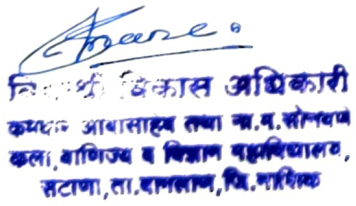 विकास अधिकारी
आबासाहेब तथा ना.म. सोनवणे
कला, वाणिज्य व विज्ञान महाविद्यालय,
सटाणा, ता. बागलाण, जि. नाशिक